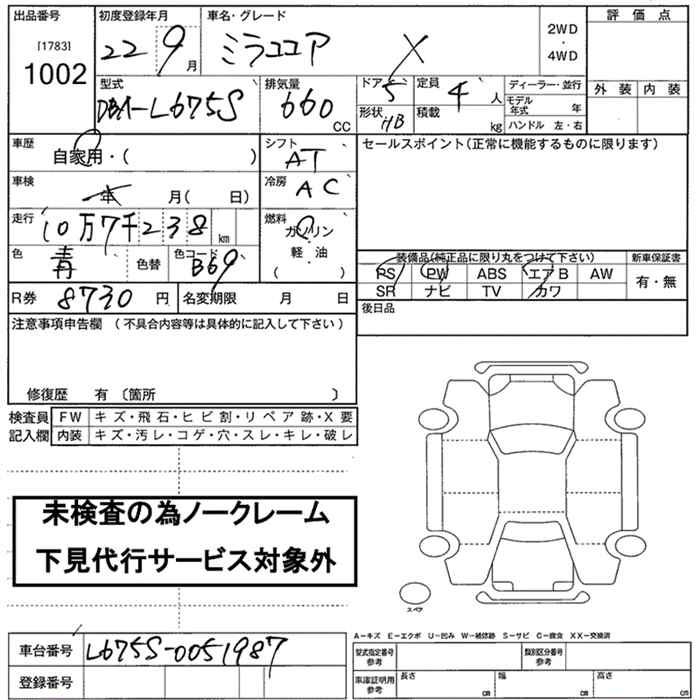 出品番号 初度登録年月 車名・グレード 評価点
[1783] 1002 22 9月 ミラココア X 2WD・4WD
型式 排気量 ドア 5 定員 4人 ディーラー・並行 外装 内装
DBA-L675S 660cc 形状 HB 積載 kg モデル年式 年
ハンドル 左・右
車歴 自家用・( ) シフト AT セールスポイント(正常に機能するものに限ります)
車検 年 月( 日) 冷房 AC
走行 10万7千238km 燃料 ガソリン
軽・油
( )
色 青 色替 色コード B69 装備品(純正品に限り丸をつけて下さい) 新車保証書
PS PW ABS エアB AW 有・無
SR ナビ TV カワ
R券 8730円 名変期限 月 日 後日品
注意事項申告欄 (不具合内容等は具体的に記入して下さい)
修復歴 有 〔箇所 〕
検査員 FW キズ・飛石・ヒビ割・リペア跡・X要
記入欄 内装 キズ・汚レ・コゲ・穴・スレ・キレ・破レ
未検査の為ノークレーム
下見代行サービス対象外
スペア
A−キズ E−エクボ U−凹み W−補修跡 S−サビ C−腐食 XX−交換済
車台番号 L675S-0051987 型式指定番号 参考 類別区分番号 参考
登録番号 車庫証明用 参考 長さ cm 幅 cm 高さ cm